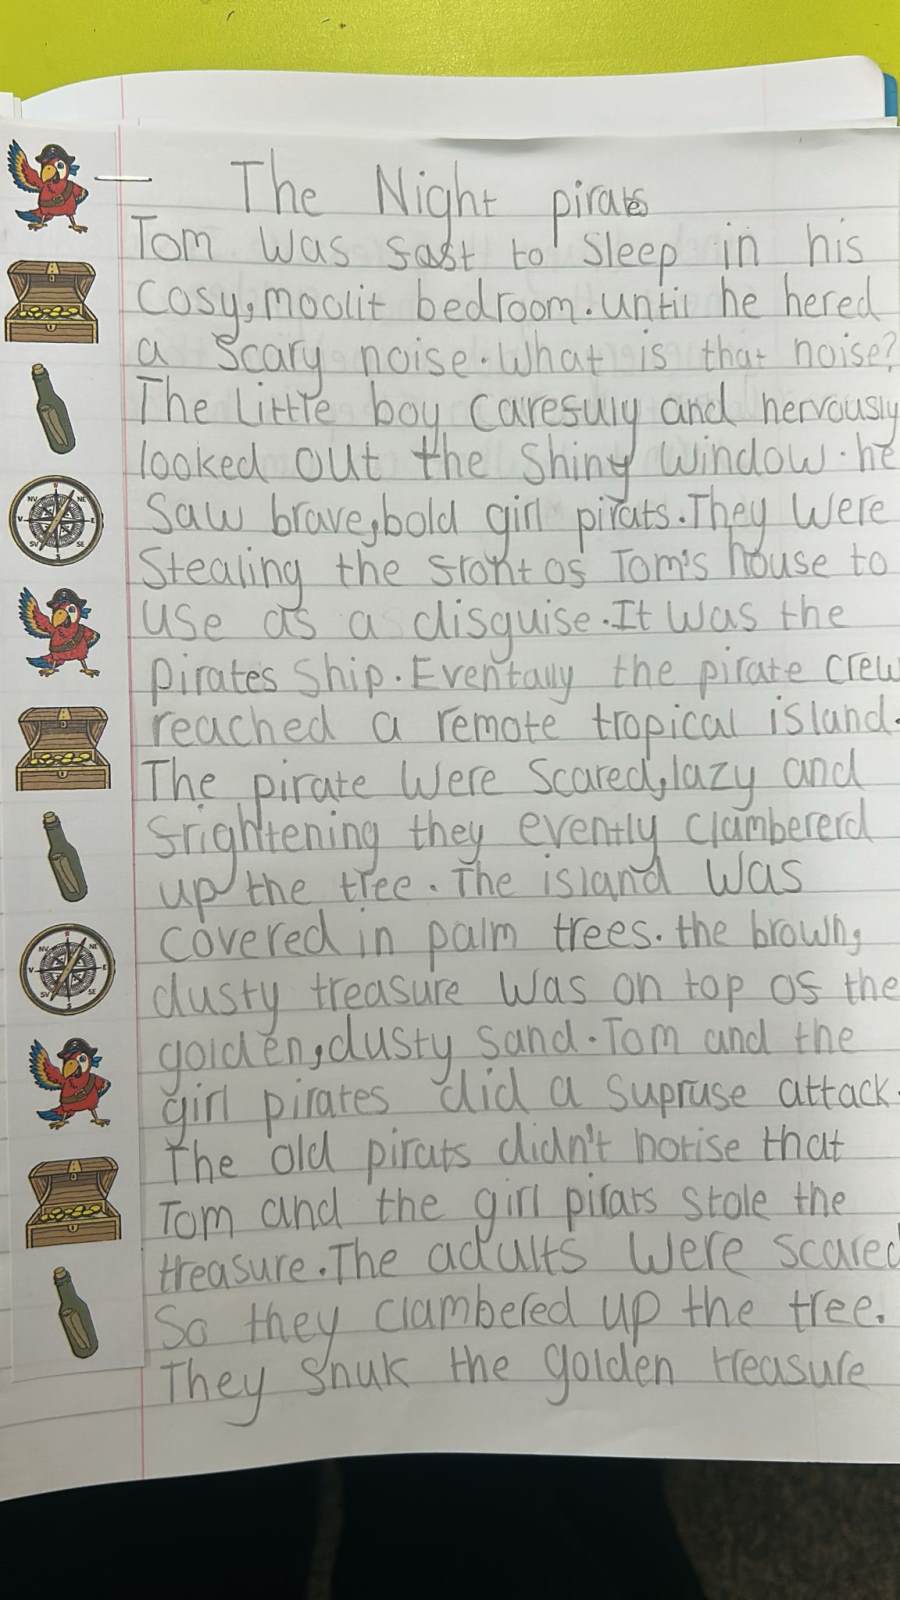 The Night pirates
Tom was fast to sleep in his
cosy, moolit bedroom. until he hered
a scary noise. What is that noise?
The little boy carefully and nervously
looked out the shiny window. he
saw brave, bold girl pirats. They were
Stealing the front of Tom's house to
use as a disguise. It was the
pirates ship. Eventally the pirate crew
reached a remote tropical island.
The pirate were scared, lazy and
frightening they evently clambererd
up the tree. The island was
covered in palm trees. the brown,
dusty treasure was on top of the
golden, dusty sand. Tom and the
girl pirates did a supruse attack.
The old pirats didn't notise that
Tom and the girl pirats stole the
treasure. The adults were scared
So they clambered up the tree.
They snuk the golden treasure